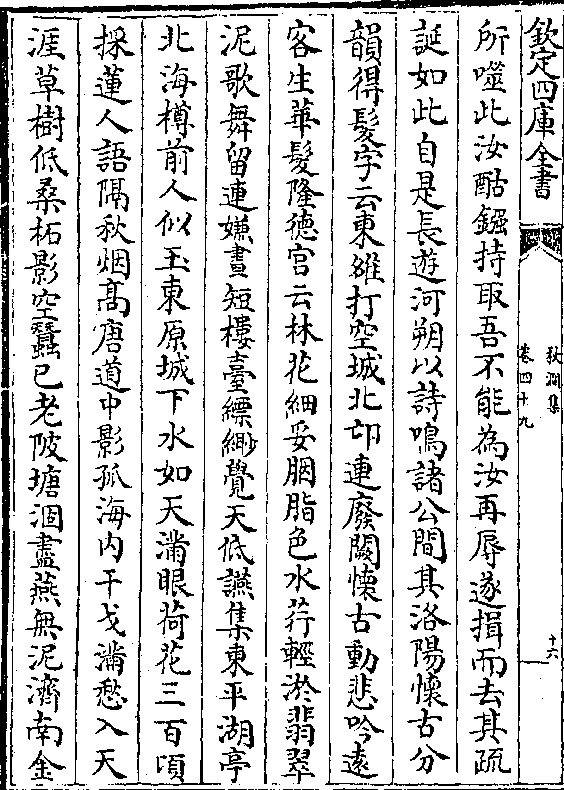 欽定四庫全書
秋澗集
卷四十九
十六
所噬此汝酷鏹持取吾不能為汝再辱遂揖而去其疏
誕如此自是長遊河朔以詩鳴諸公間其洛陽懷古分
韻得髮字云東維打空城北邙連廢闕懷古動悲吟遠
客生華髮隆德宮云林花細妥胭脂色水荇輕淤翡翠
泥歌舞留連嫌晝短樓臺縹緲覺天低讌集東平湖亭
北海樽前人似玉東原城下水如天滿眼荷花三百頃
採蓮人語隔秋烟髙唐道中影孤海内干戈滿愁入天
涯草樹低桑柘影空蠶已老陂塘涸盡燕無泥濟南金